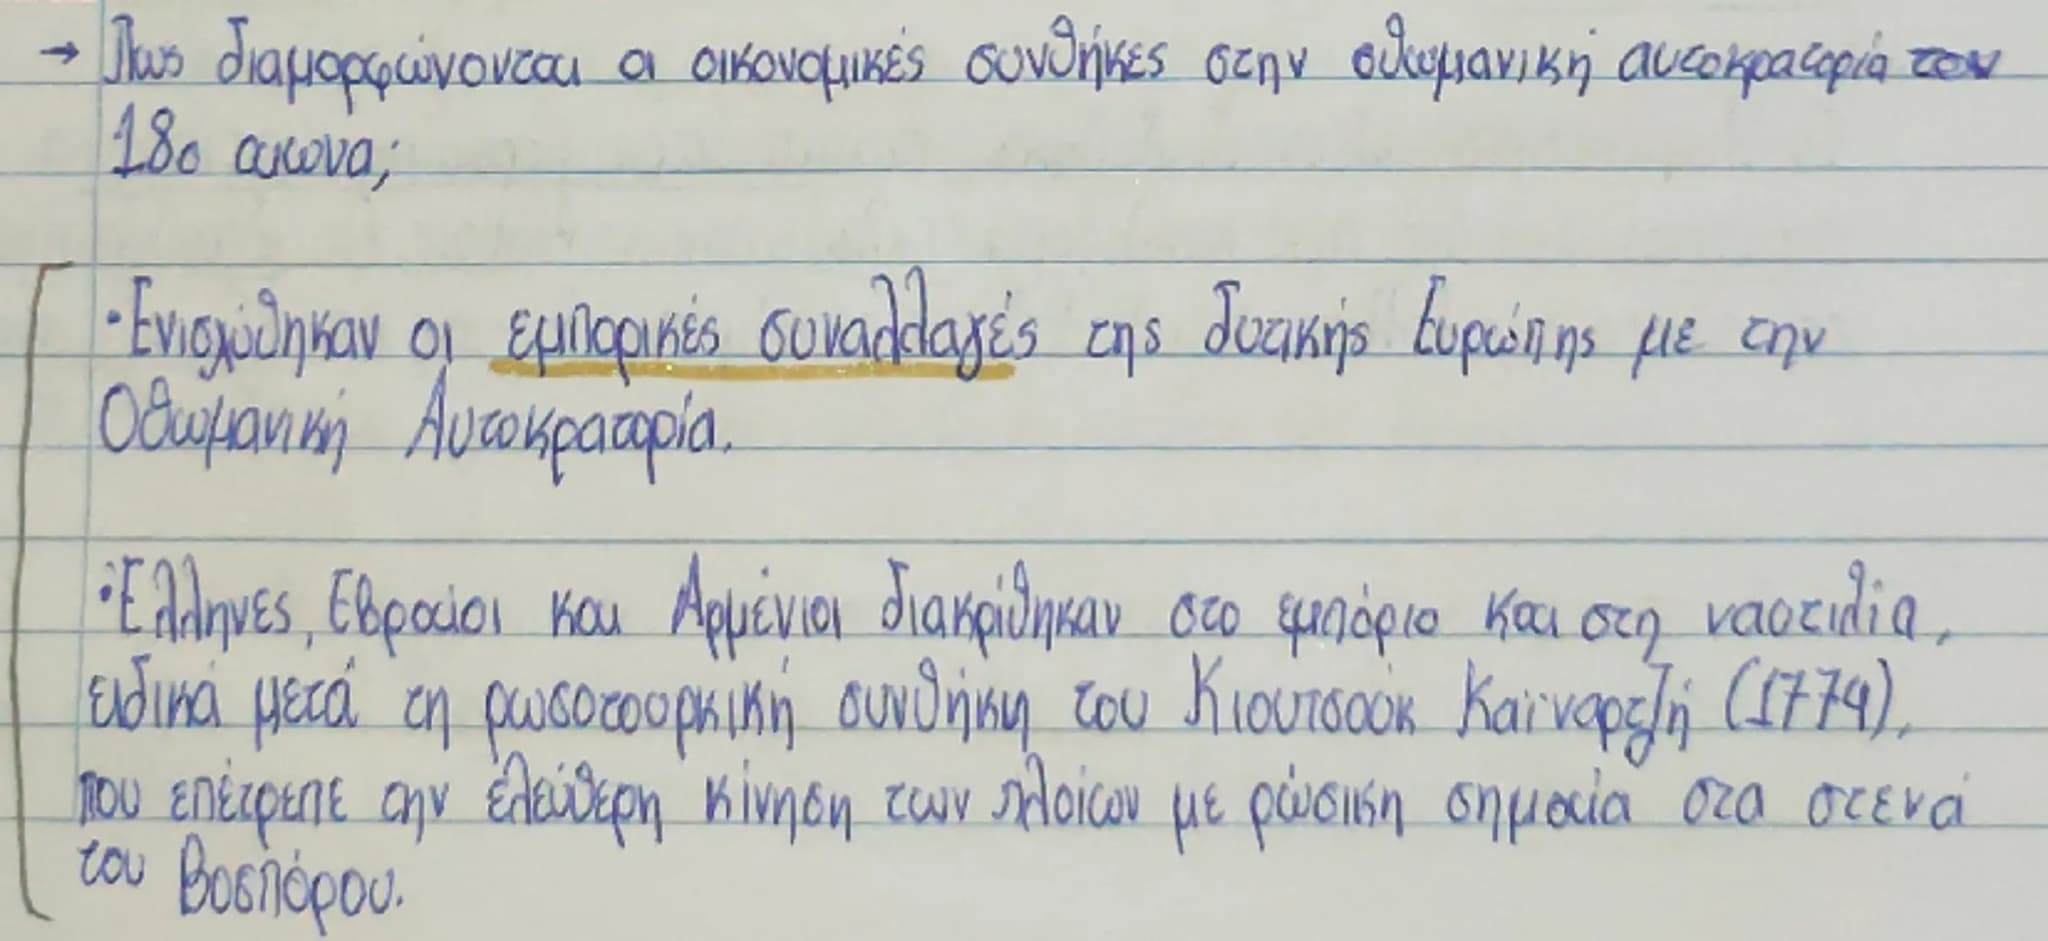 → Πως διαμορφώνονται οι οικονομικές συνθήκες στην οθωμανική αυτοκρατορία τον
18ο αιωνα;
• Ενισχύθηκαν οι εμπορικές συναλλαγές της δυτικής Ευρώπης με την
Οθωμανική Αυτοκρατορία.
• Έλληνες, Εβραίοι και Αρμένιοι διακρίθηκαν στο εμπόριο και στη ναυτιλία,
ειδικά μετά τη ρωσοτουρκική συνθήκη του Κιουτσούκ Καϊναρτζή (1774),
που επέτρεπε την ελεύθερη κίνηση των πλοίων με ρώσικη σημαία στα στενά
του Βοσπόρου.